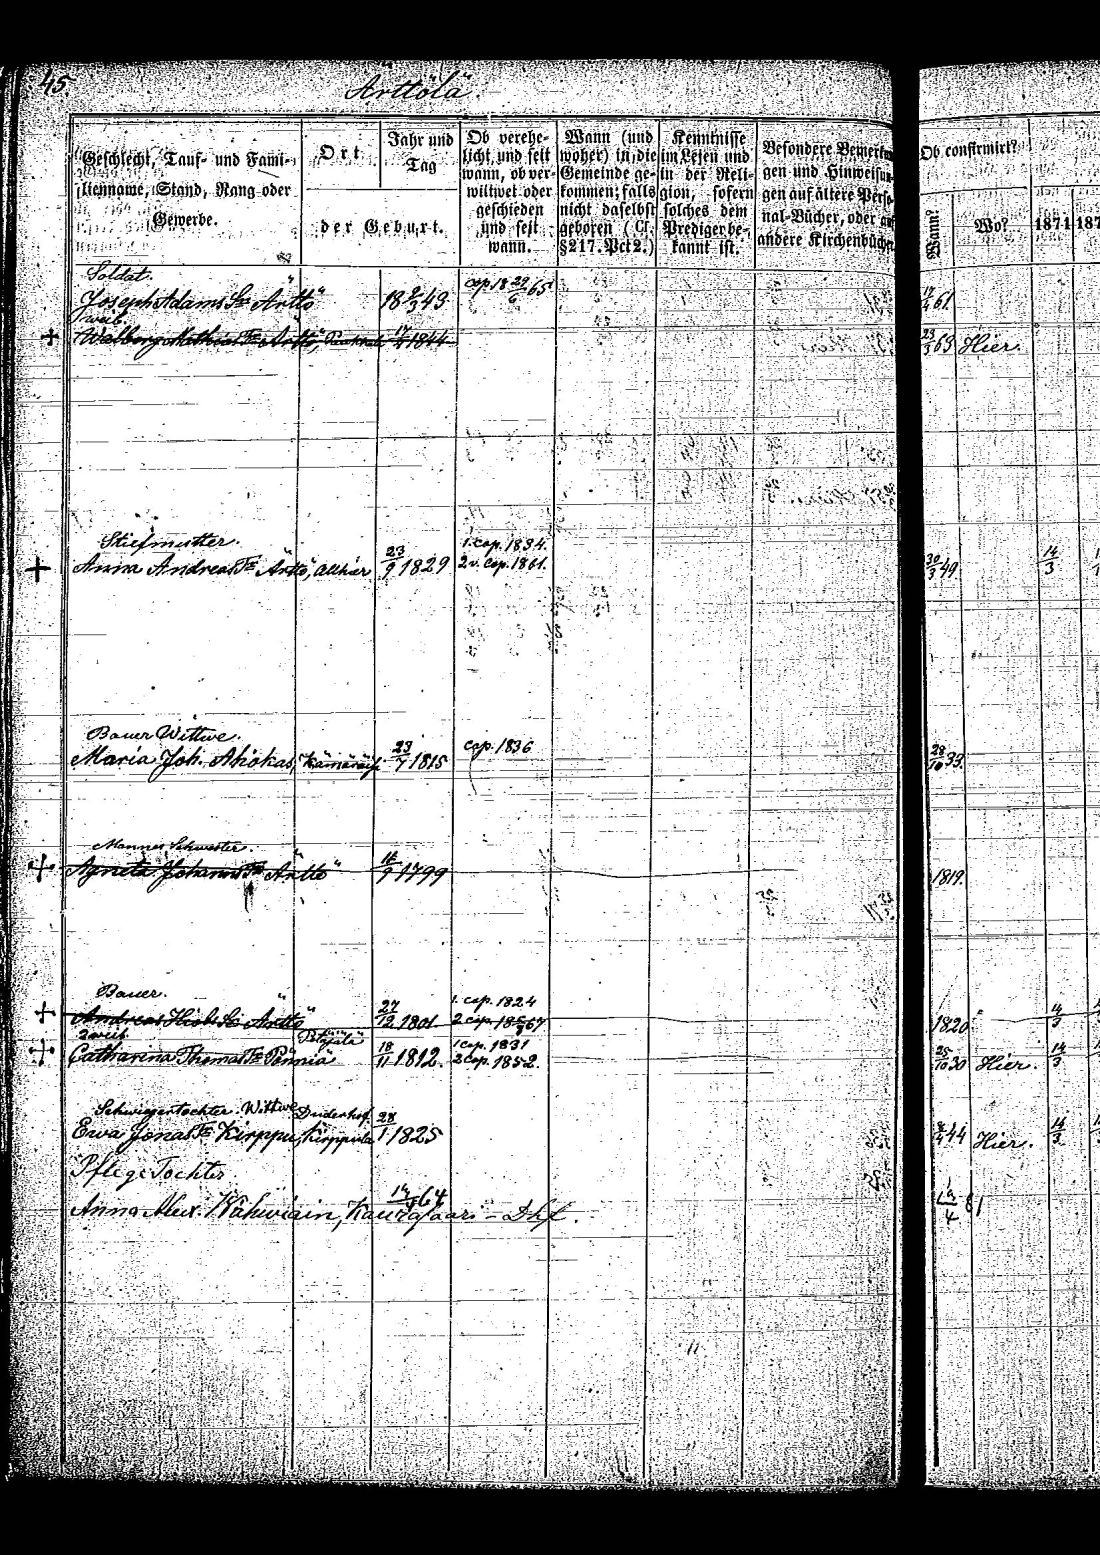 45.
Ärttölä.
Geschlecht, Tauf- und Fami-
lienname, Stand, Rang oder
Gewerbe.
Ort
der Geburt.
Jahr und
Tag
Ob verehe-
licht, und seit
wann, ob ver-
wittwet oder
geschieden
und seit
wann.
Wann (und
woher) in die
Gemeinde ge-
kommen; falls
nicht daselbst
geboren (Cf.
§ 217. Pct 2.)
Kenntnisse
im Lesen und
in der Reli-
gion, sofern
solches dem
Prediger be-
kannt ist.
Besondere Bemerkun
gen und Hinweisun
gen auf ältere Perso
nal-Bücher, oder auf
andere Kirchenbücher
Ob confirmirt?
Wann?
Wo?
1871
187
Soldat.
Joseph Adams Sn Ärttö 18 9/3 43 cop. 18 29/6 65 17/4 61.
weib.
Walborg Mathias Tr Ärttö, 17/4 1844 23/3 63 Hier.
Stiefmutter. 1. cop. 1834.
Anna Andreas Tr Ärttö, allhier 23/9 1829 2. v. cop. 1861. 30/3 49 14/3
Bauer Wittwe.
Maria Joh. Ahokas, 23/7 1815 cop. 1836 28/10 33.
Mannes Schwester.
Agneta Johanns Tr Ärttö 16/9 1799 1819.
Bauer. 1. cop. 1824
Andreas Ärttö 27/12 1801. 2 cop. 67 1820 4/3
2 weib 1 cop. 1831
Catharina Thomas Tr Pönniä 18/11 1812. 2 cop. 1852. 25/10 30 Hier. 14/3
Schwiegertochter. Wittwe Duderhof.
Ewa Jonas Tr Kirppu, Kirppula 28/1 1825 44 Hier. 14/3
Pflege Tochter
Anna Alex. 64 Dhf. 81